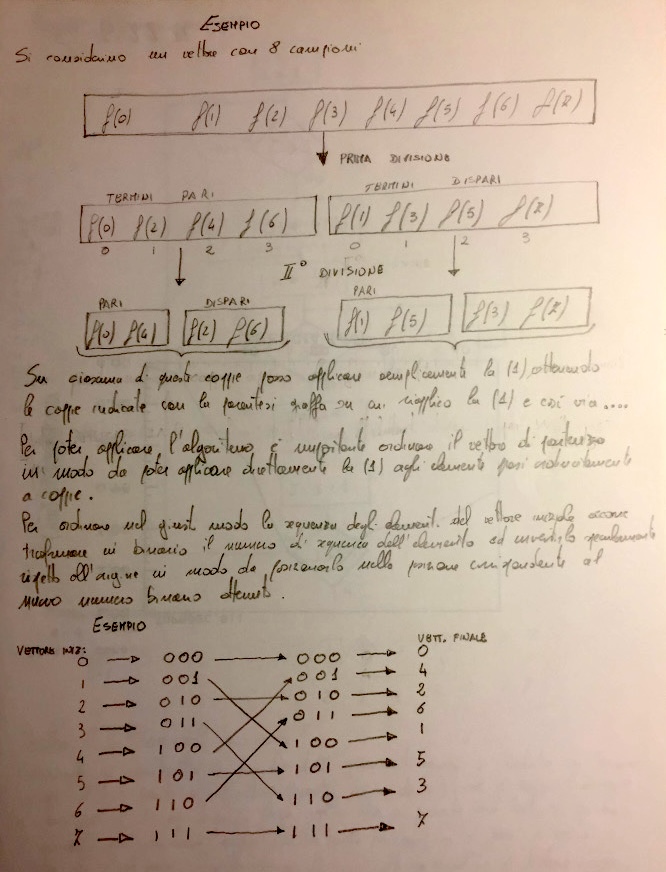 ESEMPIO
Si considerino un vettore con 8 campioni
f(0) f(1) f(2) f(3) f(4) f(5) f(6) f(7)
PRIMA DIVISIONE
TERMINI PARI TERMINI DISPARI
f(0) f(2) f(4) f(6) f(1) f(3) f(5) f(7)
0 1 2 3 0 1 2 3
II° DIVISIONE
PARI DISPARI PARI
f(0) f(4) f(2) f(6) f(1) f(5) f(3) f(7)
Su ciascuna di queste coppie posso applicare semplicemente la (1) ottenendo
le coppie indicate con la parentesi graffa su cui riapplico la (1) e così via....
Per poter applicare l'algoritmo è importante ordinare il vettore di partenza
in modo da poter applicare direttamente la (1) agli elementi presi ordinatamente
a coppie.
Per ordinare nel giusto modo la sequenza degli elementi del vettore iniziale occorre
trasformare in binario il numero di sequenza dell'elemento ed invertirlo specularmente
rispetto all'origine in modo da posizionarlo nella posizione corrispondente al
nuovo numero binario ottenuto.
ESEMPIO
VETTORE INIZ: VETT. FINALE
0 000 000 0
1 001 001 4
2 010 010 2
3 011 011 6
4 100 100 1
5 101 101 5
6 110 110 3
7 111 111 7